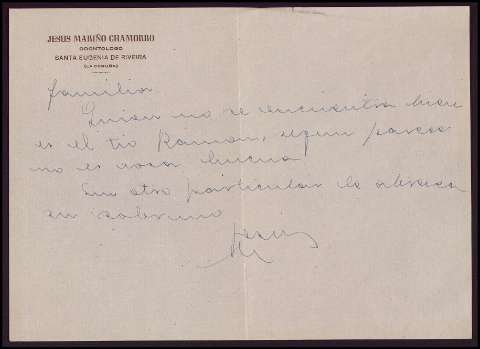 JESUS MARIÑO CHAMORRO
ODONTOLOGO
SANTA EUGENIA DE RIVEIRA
(LA CORUÑA)
familia.
Quien no se encuentra bien
es el tio Ramon, segun parece
no es cosa buena
Sin otro particular le abraza
su sobrino
Jesus